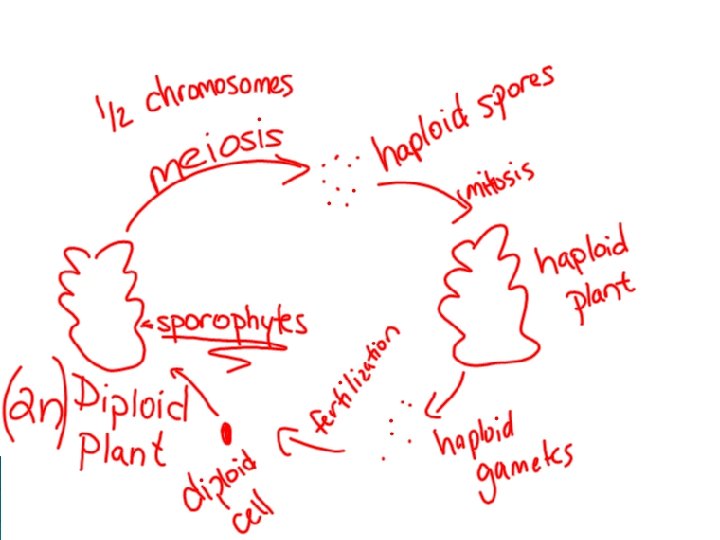 1/2 chromosomes
meiosis
haploid spores
mitosis
haploid
plant
sporophytes
fertilization
(2n) Diploid
Plant
diploid
cell
haploid
gametes